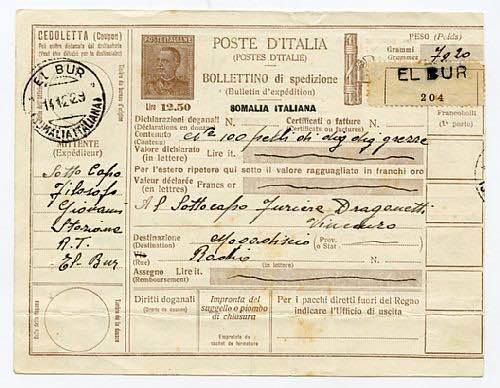 CEDOLETTA (Coupon)
Può essere distaccata dal destinatario
(Peut être détaché par le destinataire)
EL BUR
14.12.29
(SOMALIA ITALIANA)
MITTENTE
(Expéditeur)
Sotto Capo
Filosofo
Giovanni
Stazione
R.T.
El-Bur
Bollo della dogana
Timbre de la douane
Lire 12.50
POSTE D'ITALIA
(POSTES D'ITALIE)
BOLLETTINO di spedizione
(Bulletin d'expédition)
SOMALIA ITALIANA
Dichiarazioni doganali N.
(Déclarations en douane)
Certificati o fatture
Certificats ou factures)
Contenuto
(Contenu)
100 pelli di dig dig grezze
Valore dichiarato
(in lettere)
Lire it.
Per l'estero ripetere qui sotto il valore ragguagliato in franchi oro
Valeur déclarée
(en lettres)
Francs or
Al Sottocapo Furiere Draganetti
Vincenzo
Destinazione
(Destination)
Mogadiscio
Prov.
o Stat.
Via
(Rue)
Radio
N.
(in lettere)
Assegno
(Remboursement)
Lire it.
Diritti doganali
(Droits de douane)
Impronta del
suggello o piombo
di chiusura
Empreinte du
cachet de fermeture
Per i pacchi diretti fuori del Regno
indicare l'Ufficio di uscita
PESO (Poids)
Grammi
Grammes
7920
EL BUR
204
Francobolli
(1ª parte)